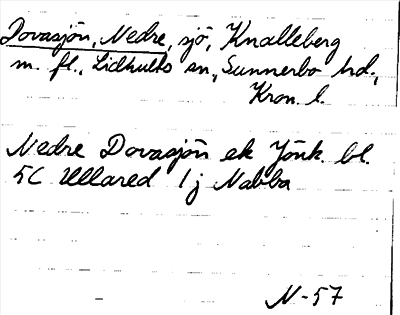 Dovasjön, Nedre, sjö, Knalleberg
m. fl., Lidhults sn, Sunnerbo hd.,
Kron. l.
Nedre Dovasjön ek Jönk. bl.
5C Ullared 1j Nabba
N-57